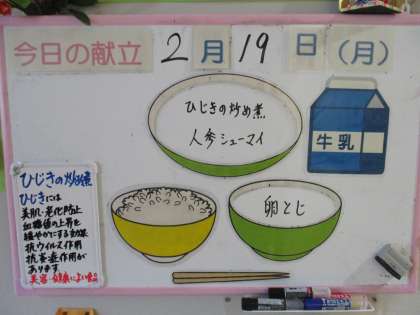 今日の献立 2月19日(月)
ひじきの炒め煮
人参シューマイ
牛乳
卵とじ
ひじきの炒め煮
ひじきには
美肌・老化防止
血糖値の上昇を
緩やかにする効果
抗ウイルス作用
抗菌作用が
あります
美容・健康によい